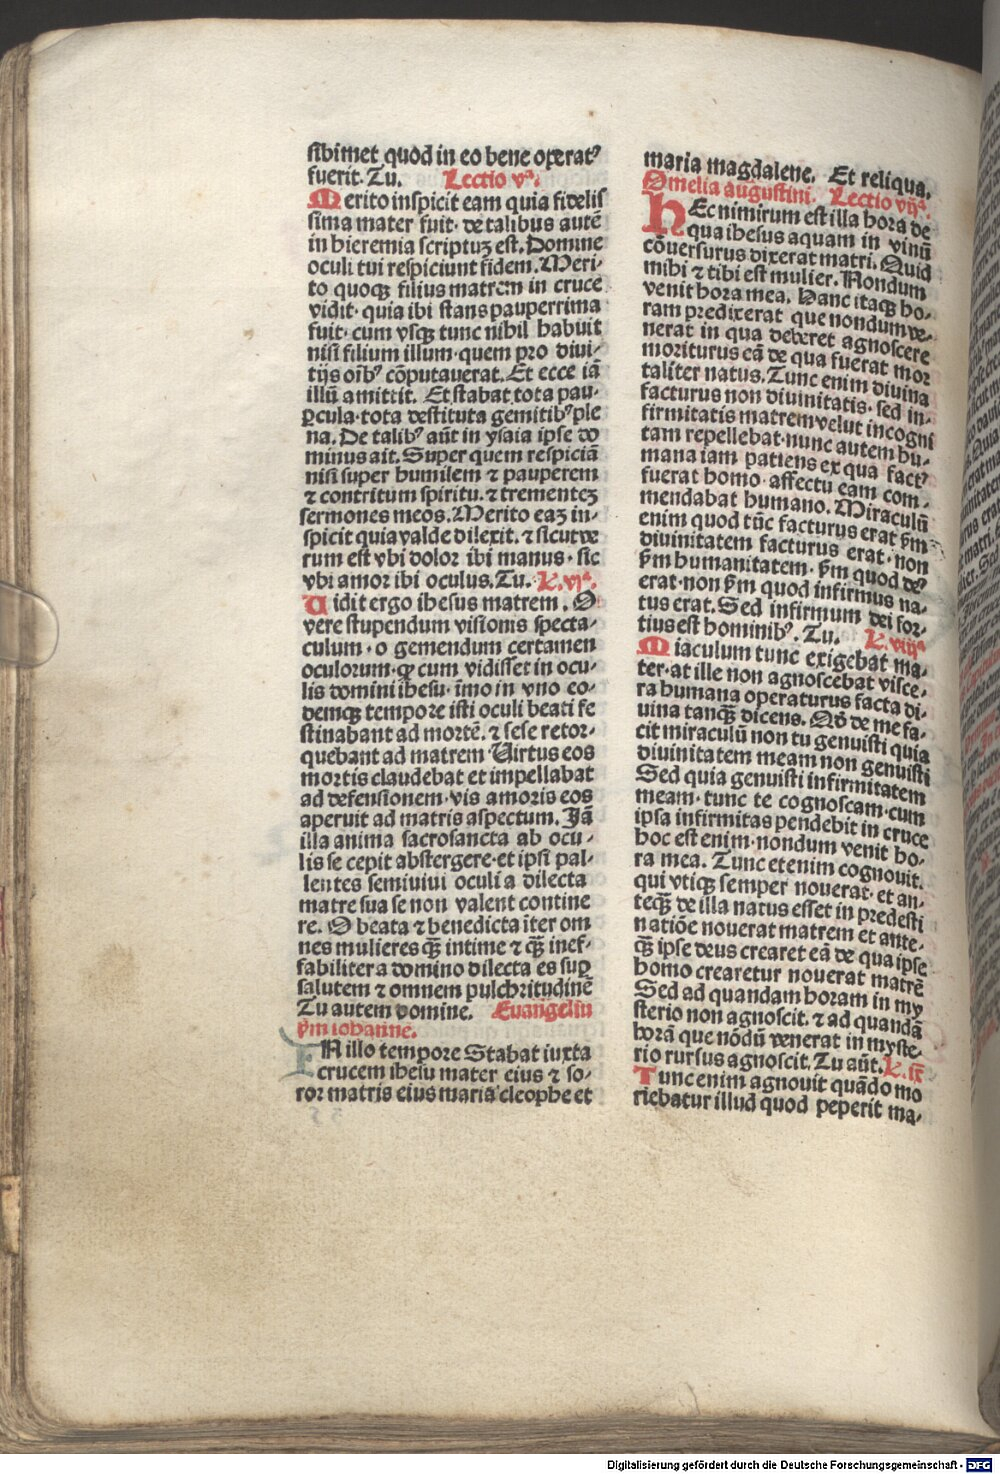 sibimet quod in eo bene operatꝰ
fuerit. Tu. Lectio vᵃ.
Merito inspicit eam quia fidelis
sima mater fuit· de talibus autē
in hieremia scriptuꝫ est. Domine
oculi tui respiciunt fidem. Meri-
to quoqꝫ filius matrem in cruce
vidit· quia ibi stans pauperrima
fuit· cum vsqꝫ tunc nihil habuit
nisi filium illum· quem pro diui-
tijs oībꝰ cōputauerat. Et ecce iā
illū amittit. Et stabat tota pau-
ꝑcula· tota destituta gemitibꝰ ple
na. De talibꝰ aūt in ysaia ipse do
minus ait. Super quem respiciā
nisi super humilem ⁊ pauperem
⁊ contritum spiritu. ⁊ trementeꝫ
sermones meos. Merito eaꝫ in-
spicit quia valde dilexit. ⁊ sicut ve
rum est vbi dolor ibi manus· sic
vbi amor ibi oculus. Tu. L. vjᵃ.
Uidit ergo ihesus matrem. O
vere stupendum visionis specta-
culum· o gemendum certamen
oculorum· qꝫ cum vidisset in ocu-
lis domini ihesu· īmo in vno eo-
demqꝫ tempore isti oculi beati fe
stinabant ad mortē. ⁊ sese retor-
quebant ad matrem Uirtus eos
mortis claudebat et impellabat
ad defensionem· vis amoris eos
aperuit ad matris aspectum. Jā
illa anima sacrosancta ab ocu-
lis se cepit abstergere· et ipsi pal-
lentes semiuiui oculi a dilecta
matre sua se non valent contine
re. O beata ⁊ benedicta īter om
nes mulieres q̄ꝫ intime ⁊ q̄ꝫ inef-
fabiliter a domino dilecta es suꝑ
salutem ⁊ omnem pulchritudinē
Tu autem domine. Euangeliū
ẜm iohannē.
IN illo tempore Stabat iuxta
crucem ihesu mater eius ⁊ so-
ror matris eius maria cleophe et
maria magdalene. Et reliqua.
Omelia augustini. Lectio vijᵃ.
HEc nimirum est illa hora de
qua ihesus aquam in vinū
cōuersurus dixerat matri. Quid
mihi ⁊ tibi est mulier. Nondum
venit hora mea. Hanc itaqꝫ ho-
ram predixerat que nondum ve-
nerat in qua deberet agnoscere
moriturus eā de qua fuerat mor
taliter natus. Tunc enim diuina
facturus non diuinitatis· sed in-
firmitatis matrem velut incogni
tam repellebat· nunc autem hu-
mana iam patiens ex qua factꝰ
fuerat homo· affectu eam com-
mendabat humano. Miraculū
enim quod tūc facturus erat ẜm
diuinitatem facturus erat· non
ẜm humanitatem· ẜm quod deꝰ
erat· non ẜm quod infirmus na-
tus erat. Sed infirmum dei for-
tius est hominibꝰ. Tu. L. viijᵃ
Miaculum tunc exigebat ma-
ter· at ille non agnoscebat visce-
ra humana operaturus facta di-
uina tanqꝫ dicens. Qđ de me fa-
cit miraculū non tu genuisti quia
diuinitatem meam non genuisti
Sed quia genuisti infirmitatem
meam· tunc te cognoscam· cum
ipsa infirmitas pendebit in cruce
hoc est enim· nondum venit ho-
ra mea. Tunc etenim cognouit.
qui vtiqꝫ semper nouerat· et an-
teqꝫ de illa natus esset in predesti
natiōe nouerat matrem et ante-
qꝫ ipse deus crearet eā de qua ipse
homo crearetur nouerat matrē
Sed ad quandam horam in my
sterio non agnoscit. ⁊ ad quandā
horā que nōdū venerat in myste-
rio rursus agnoscit. Tu aūt. L. ix
Tunc enim agnouit quādo mo
riebatur illud quod peperit ma-
Digitalisierung gefördert durch die Deutsche Forschungsgemeinschaft - DFG